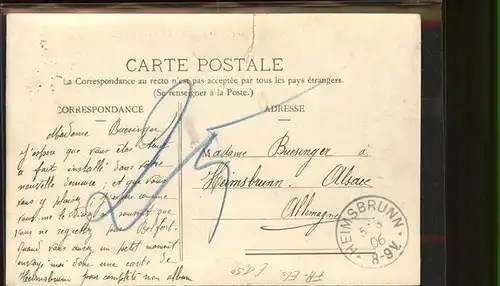 CARTE POSTALE
La Correspondance au recto n'est pas acceptée par tous les pays étrangers.
(Se renseigner à la Poste.)
CORRESPONDANCE
ADRESSE
Madame Buesinger
J'espère que vous êtes tout
à fait installé dans votre
nouvelle demeure; et que vous
vous y plaisez;
vous me le souvent que
vous ne regrettez pas Belfort.
Quand vous aurez un petit moment
envoyez moi donc une carte de
Heimsbrunn pour compléter mon album
Madame Buesinger à
Heimsbrunn. Alsace
Allemagne
HEIMSBRUNN
06
8-9V.